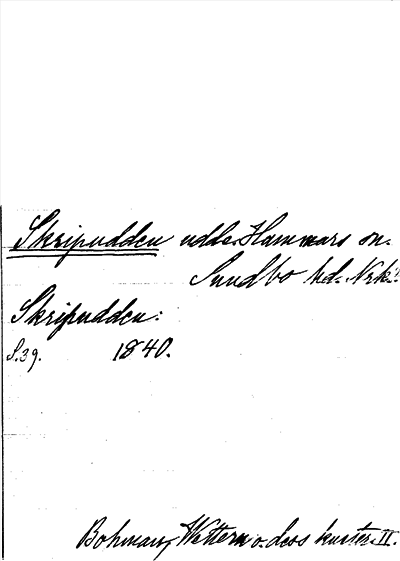 Skripudden udde Hammars sn.
Sundbo hd. Nrk.
Skripudden:
S.39. 1840.
Bohman, Wettern o. dess kuster. II.